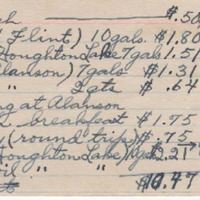 ch $.50
(Flint) 10 gals. $1.80
Houghton Lake 7 gals 1.51
Alanson) 7 gals $1.31
" " 2 qts $ .64
ng at Alanson
breakfast $1.75
(round trip) $ .75
Houghton Lake) 2.21
oil " "
$10.47